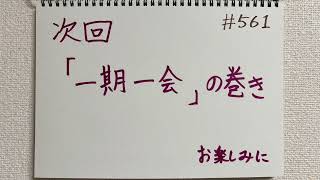 #561
次回
「一期一会」の巻き
お楽しみに